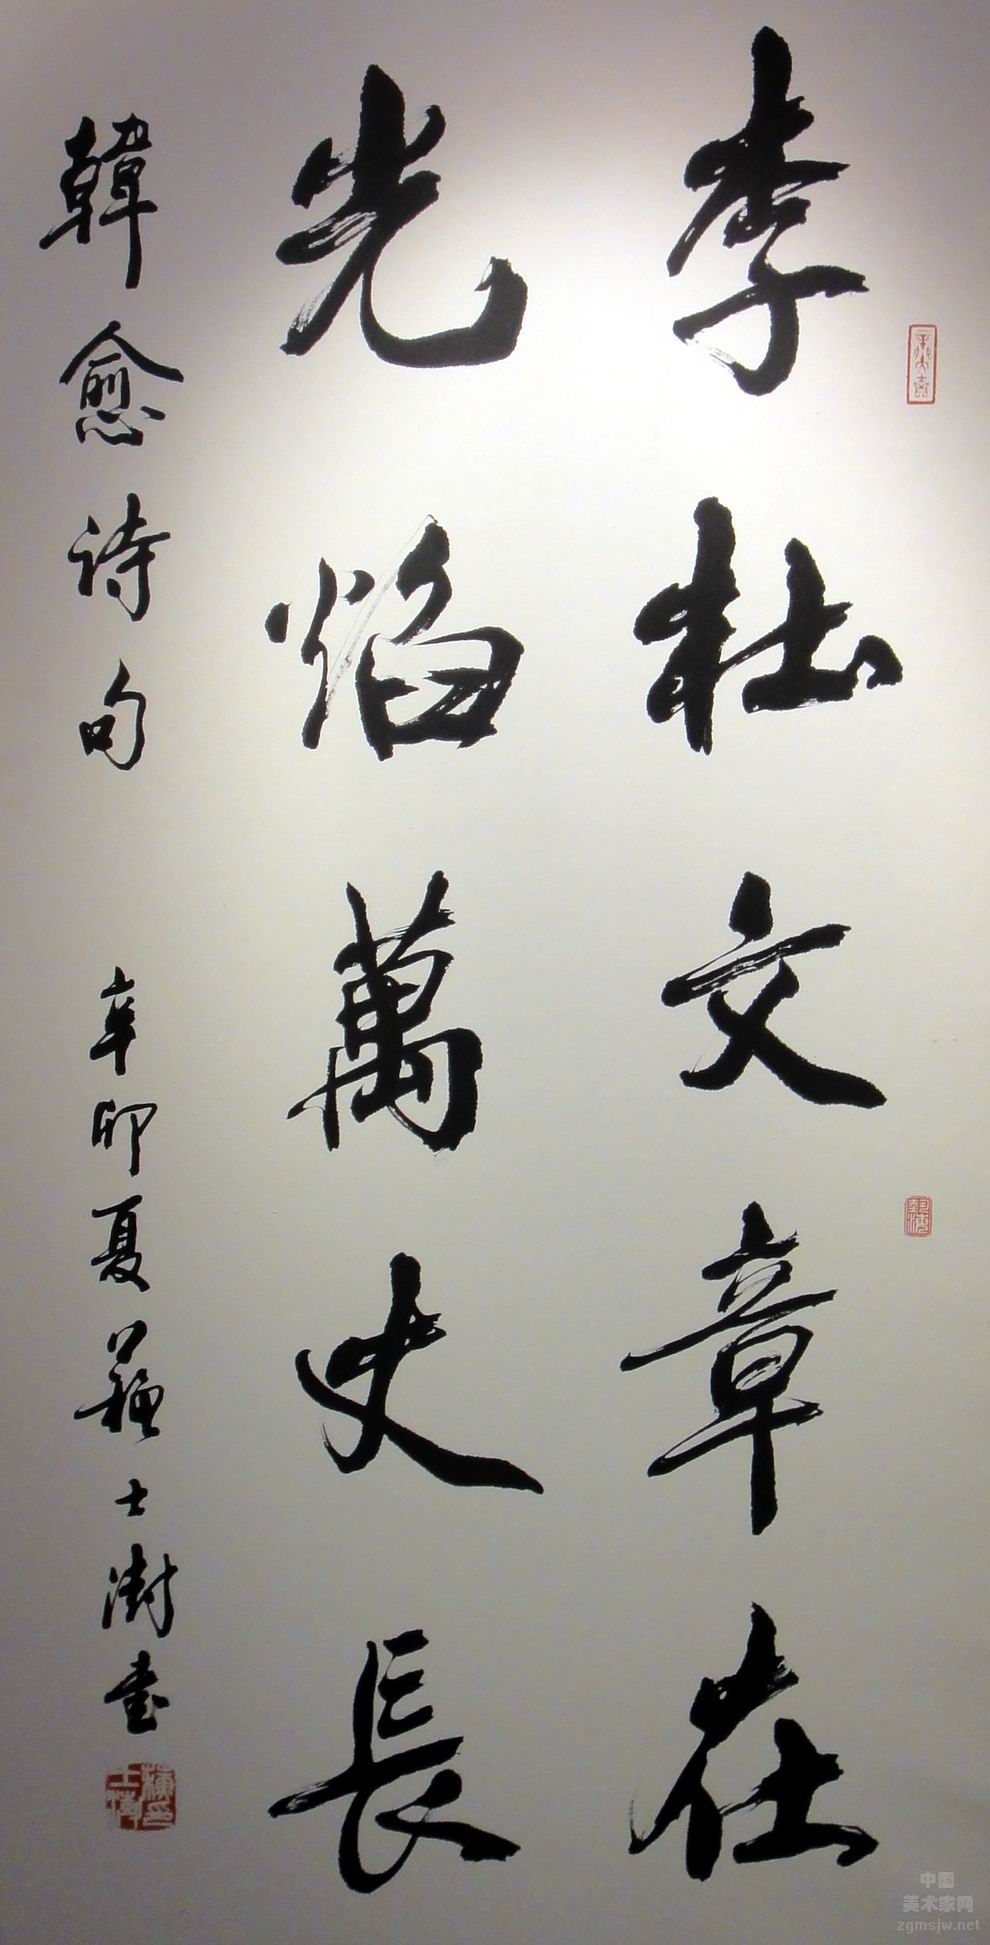 李杜文章在
光焰萬丈長
韓愈詩句
辛卯夏蘇士澍書
中国
美术家网
zgmsjw.net